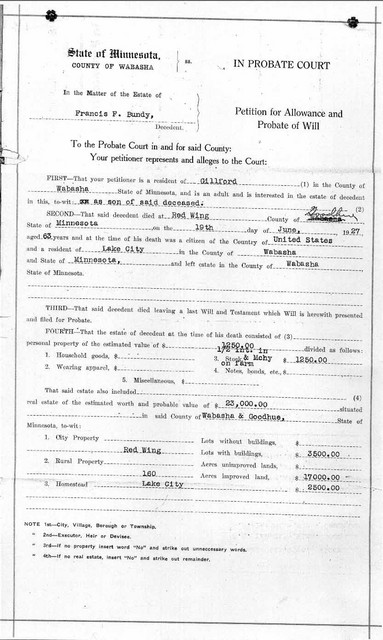 State of Minnesota,
COUNTY OF WABASHA
ss.
IN PROBATE COURT
In the Matter of the Estate of
Francis F. Bundy,
Decedent.
Petition for Allowance and
Probate of Will
To the Probate Court in and for said County:
Your petitioner represents and alleges to the Court:
FIRST—That your petitioner is a resident of Gillford (1) in the County of
Wabasha State of Minnesota, and is an adult and is interested in the estate of decedent
in this, to-wit: as son of said deceased. (2)
SECOND—That said decedent died at Red Wing County of Wabasha Goodhue
State of Minnesota on the 19th day of June, 1927
aged 63 years and at the time of his death was a citizen of the Country of United States
and a resident of Lake City in the County of Wabasha
and State of Minnesota, and left estate in County of Wabasha
State of Minnesota.
THIRD—That said decedent died leaving a last Will and Testament which Will is herewith presented
and filed for Probate.
FOURTH—That the estate of decedent at the time of his death consisted of (3)
personal property of the estimated value of $ 1250.00 divided as follows:
1. Household goods, $
1/2 int. in
3. Stock & Mchy $ 1250.00
on farm
2. Wearing apparel, $
4. Notes, bonds, etc., $
5. Miscellaneous, $
That said estate also included (4)
real estate of the estimated worth and probable value of $ 23,000.00 situated
in said County of Wabasha & Goodhue, State of
Minnesota, to-wit:
1. City Property
Lots without buildings, $
Red Wing Lots with buildings, $ 3500.00
2. Rural Property
Acres unimproved land, $
160 Acres improved land, $ 17000.00
3. Homestead Lake City $ 2500.00
NOTE 1st—City, Village, Borough or Township.
" 2nd—Executor, Heir or Devisee.
" 3rd—If no property insert word "No" and strike out unneccessary words.
" 4th—If no real estate, insert "No" and strike out remainder.